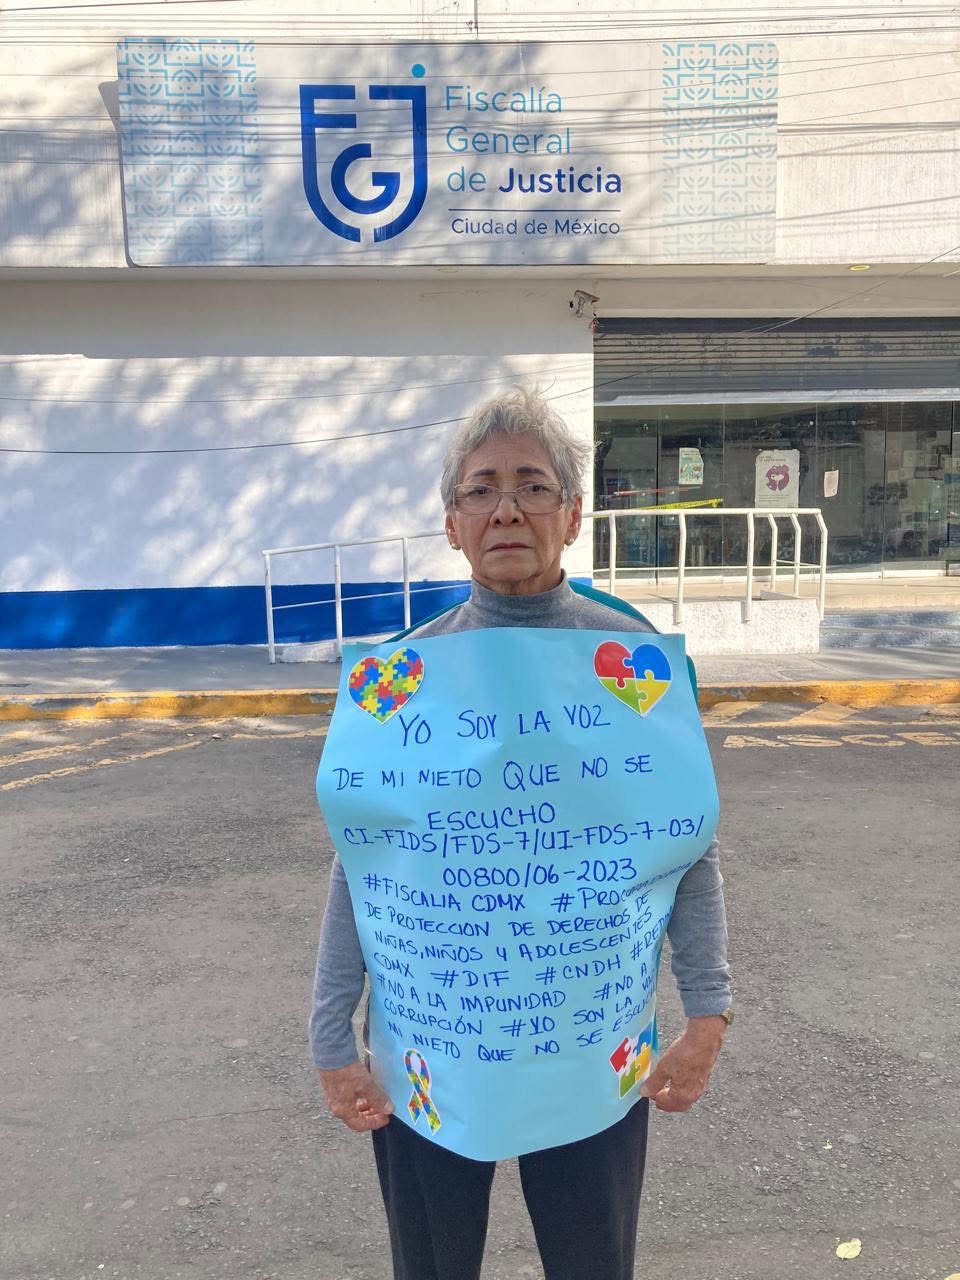 Fiscalía
General
de Justicia
Ciudad de México
YO SOY LA VOZ
DE MI NIETO QUE NO SE
ESCUCHO
CI-FIDS/FDS-7/UI-FDS-7-03/
00800/06-2023
#FISCALIA CDMX #PROCURADURIA
DE PROTECCION DE DERECHOS DE
NIÑAS, NIÑOS Y ADOLESCENTES
CDMX #DIF #CNDH
#NO A LA IMPUNIDAD #NO A
CORRUPCIÓN #YO SOY LA VOZ
MI NIETO QUE NO SE